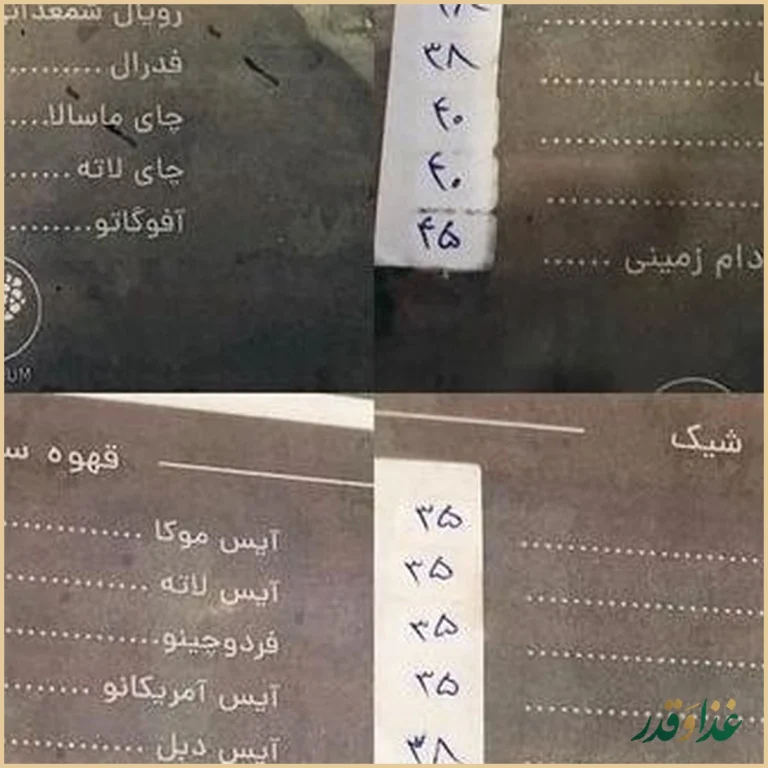 رویال
فدرال
چای ماسالا
چای لاته
آفوگاتو
UM
۳۸
۴۰
۴۰
۴۵
زمینی
قهوه
آیس موکا
آیس لاته
فردوچینو
آیس آمریکانو
آیس دبل
شیک
۳۵
۳۵
۳۵
۳۵
۳۸
غذا و قدر